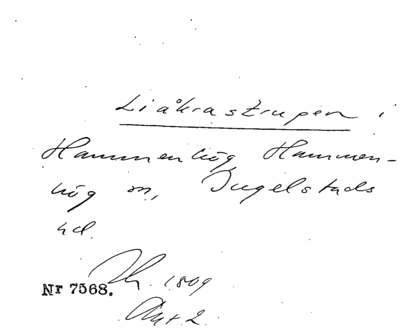 Liåkrastrupen i
Hammenhög, Hammen-
hög sn, Ingelstads
hd.
Nr 7568. Th. 1809
Akt 2.